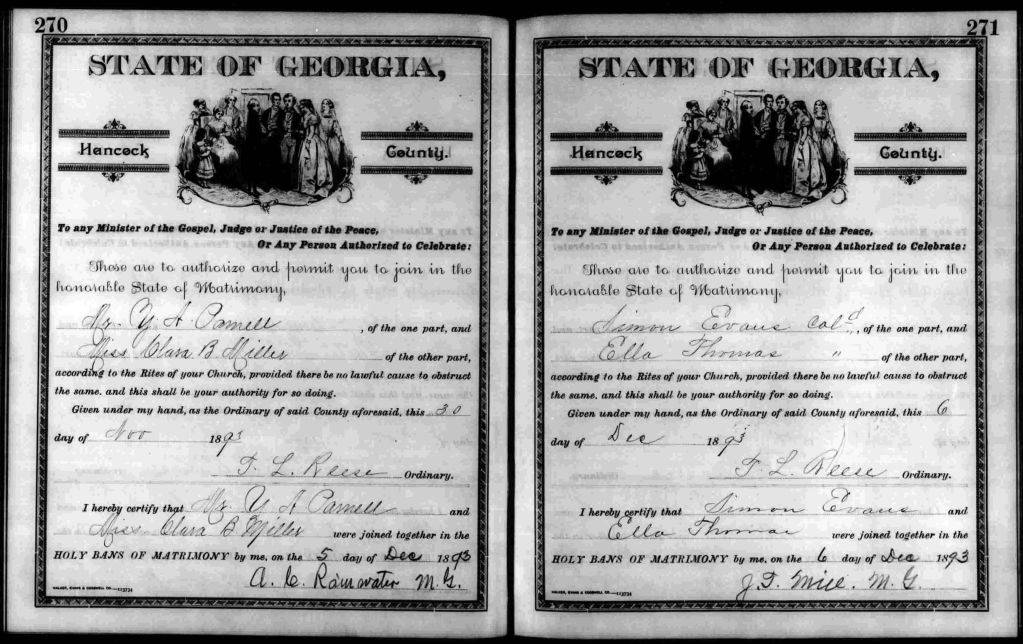 270
STATE OF GEORGIA,
Hancock County.
To any Minister of the Gospel, Judge or Justice of the Peace,
Or Any Person Authorized to Celebrate:
These are to authorize and permit you to join in the
honorable State of Matrimony,
Mr. Y A Parnell , of the one part, and
Miss Clara B Miller of the other part,
according to the Rites of your Church, provided there be no lawful cause to obstruct
the same. and this shall be your authority for so doing.
Given under my hand, as the Ordinary of said County aforesaid, this 30
day of Nov 1893
T. L. Reese Ordinary.
I hereby certify that Mr Y A Parnell and
Miss Clara B Miller were joined together in the
HOLY BANS OF MATRIMONY by me, on the 5 day of Dec 1893
A. C. Rainwater M. G.
WALKER, EVANS & COGSWELL CO.
271
STATE OF GEORGIA,
Hancock County.
To any Minister of the Gospel, Judge or Justice of the Peace,
Or Any Person Authorized to Celebrate:
These are to authorize and permit you to join in the
honorable State of Matrimony,
Simon Evans Cold, of the one part, and
Ella Thomas " of the other part,
according to the Rites of your Church, provided there be no lawful cause to obstruct
the same. and this shall be your authority for so doing.
Given under my hand, as the Ordinary of said County aforesaid, this 6
day of Dec 1893
T. L. Reese Ordinary.
I hereby certify that Simon Evans and
Ella Thomas were joined together in the
HOLY BANS OF MATRIMONY by me, on the 6 day of Dec 1893
J. T. M. G.
WALKER, EVANS & COGSWELL CO.